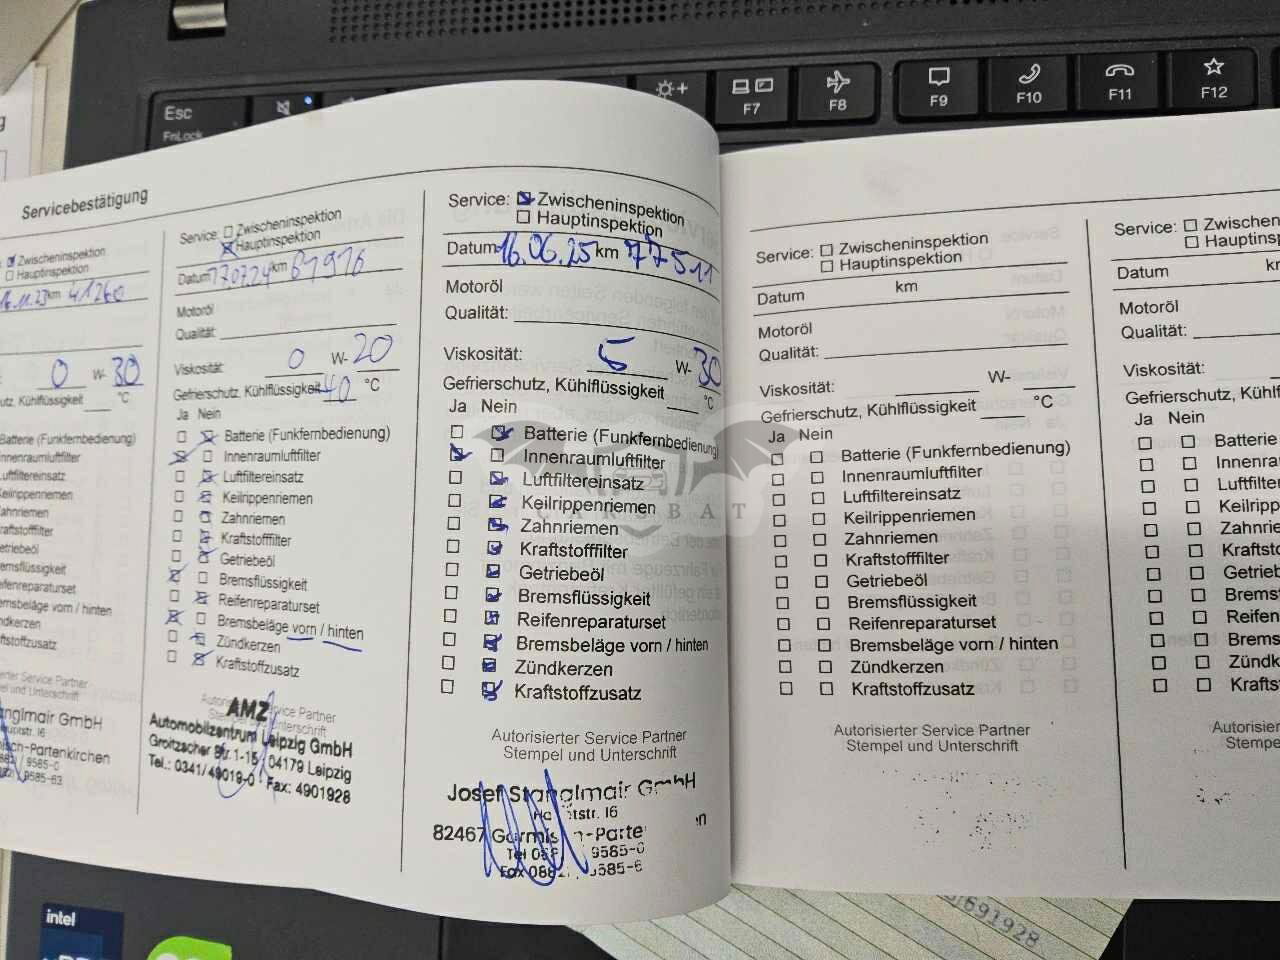 Esc
FnLock
F7
F8
F9
F10
F11
F12
Servicebestätigung
Zwischeninspektion
Hauptinspektion
16.11.23 km 41260
0 W- 30
Kühlflüssigkeit °C
Batterie (Funkfernbedienung)
Innenraumluftfilter
Luftfiltereinsatz
Keilrippenriemen
Zahnriemen
Kraftstofffilter
Getriebeöl
Bremsflüssigkeit
Reifenreparaturset
Bremsbeläge vorn / hinten
Zündkerzen
Kraftstoffzusatz
Service Partner
und Unterschrift
Stanglmair GmbH
Hauptstr. 16
Garmisch-Partenkirchen
9585-0
9585-63
Service: Zwischeninspektion
Hauptinspektion
Datum 17.07.24 km 61916
Motoröl
Qualität:
Viskosität: 0 W- 20
Gefrierschutz, Kühlflüssigkeit -40 °C
Ja Nein
Batterie (Funkfernbedienung)
Innenraumluftfilter
Luftfiltereinsatz
Keilrippenriemen
Zahnriemen
Kraftstofffilter
Getriebeöl
Bremsflüssigkeit
Reifenreparaturset
Bremsbeläge vorn / hinten
Zündkerzen
Kraftstoffzusatz
Autorisierter Service Partner
Stempel und Unterschrift
AMZ
Automobilzentrum Leipzig GmbH
Groitzscher Str. 1-15 04179 Leipzig
Tel.: 0341/49019-0 Fax: 4901928
Service: Zwischeninspektion
Hauptinspektion
Datum 16.06.25 km 77511
Motoröl
Qualität:
Viskosität: 5 W- 30
Gefrierschutz, Kühlflüssigkeit °C
Ja Nein
Batterie (Funkfernbedienung)
Innenraumluftfilter
Luftfiltereinsatz
Keilrippenriemen
Zahnriemen
Kraftstofffilter
Getriebeöl
Bremsflüssigkeit
Reifenreparaturset
Bremsbeläge vorn / hinten
Zündkerzen
Kraftstoffzusatz
Autorisierter Service Partner
Stempel und Unterschrift
Josef Stanglmair GmbH
Hauptstr. 16
82467 Garmisch-Partenkirchen
Tel 9585-0
Fax 9585-6
CARSBAT
Service: Zwischeninspektion
Hauptinspektion
Datum km
Motoröl
Qualität:
Viskosität: W-
Gefrierschutz, Kühlflüssigkeit °C
Ja Nein
Batterie (Funkfernbedienung)
Innenraumluftfilter
Luftfiltereinsatz
Keilrippenriemen
Zahnriemen
Kraftstofffilter
Getriebeöl
Bremsflüssigkeit
Reifenreparaturset
Bremsbeläge vorn / hinten
Zündkerzen
Kraftstoffzusatz
Autorisierter Service Partner
Stempel und Unterschrift
Service: Zwischen
Hauptinsp
Datum km
Motoröl
Qualität:
Viskosität:
Gefrierschutz, Kühlflüssigke
Ja Nein
Batterie
Innenra
Luftfilter
Keilripp
Zahnrie
Kraftsto
Getrieb
Bremsf
Reifen
Brems
Zündk
Krafts
Autorisierter
Stempe
691928
intel